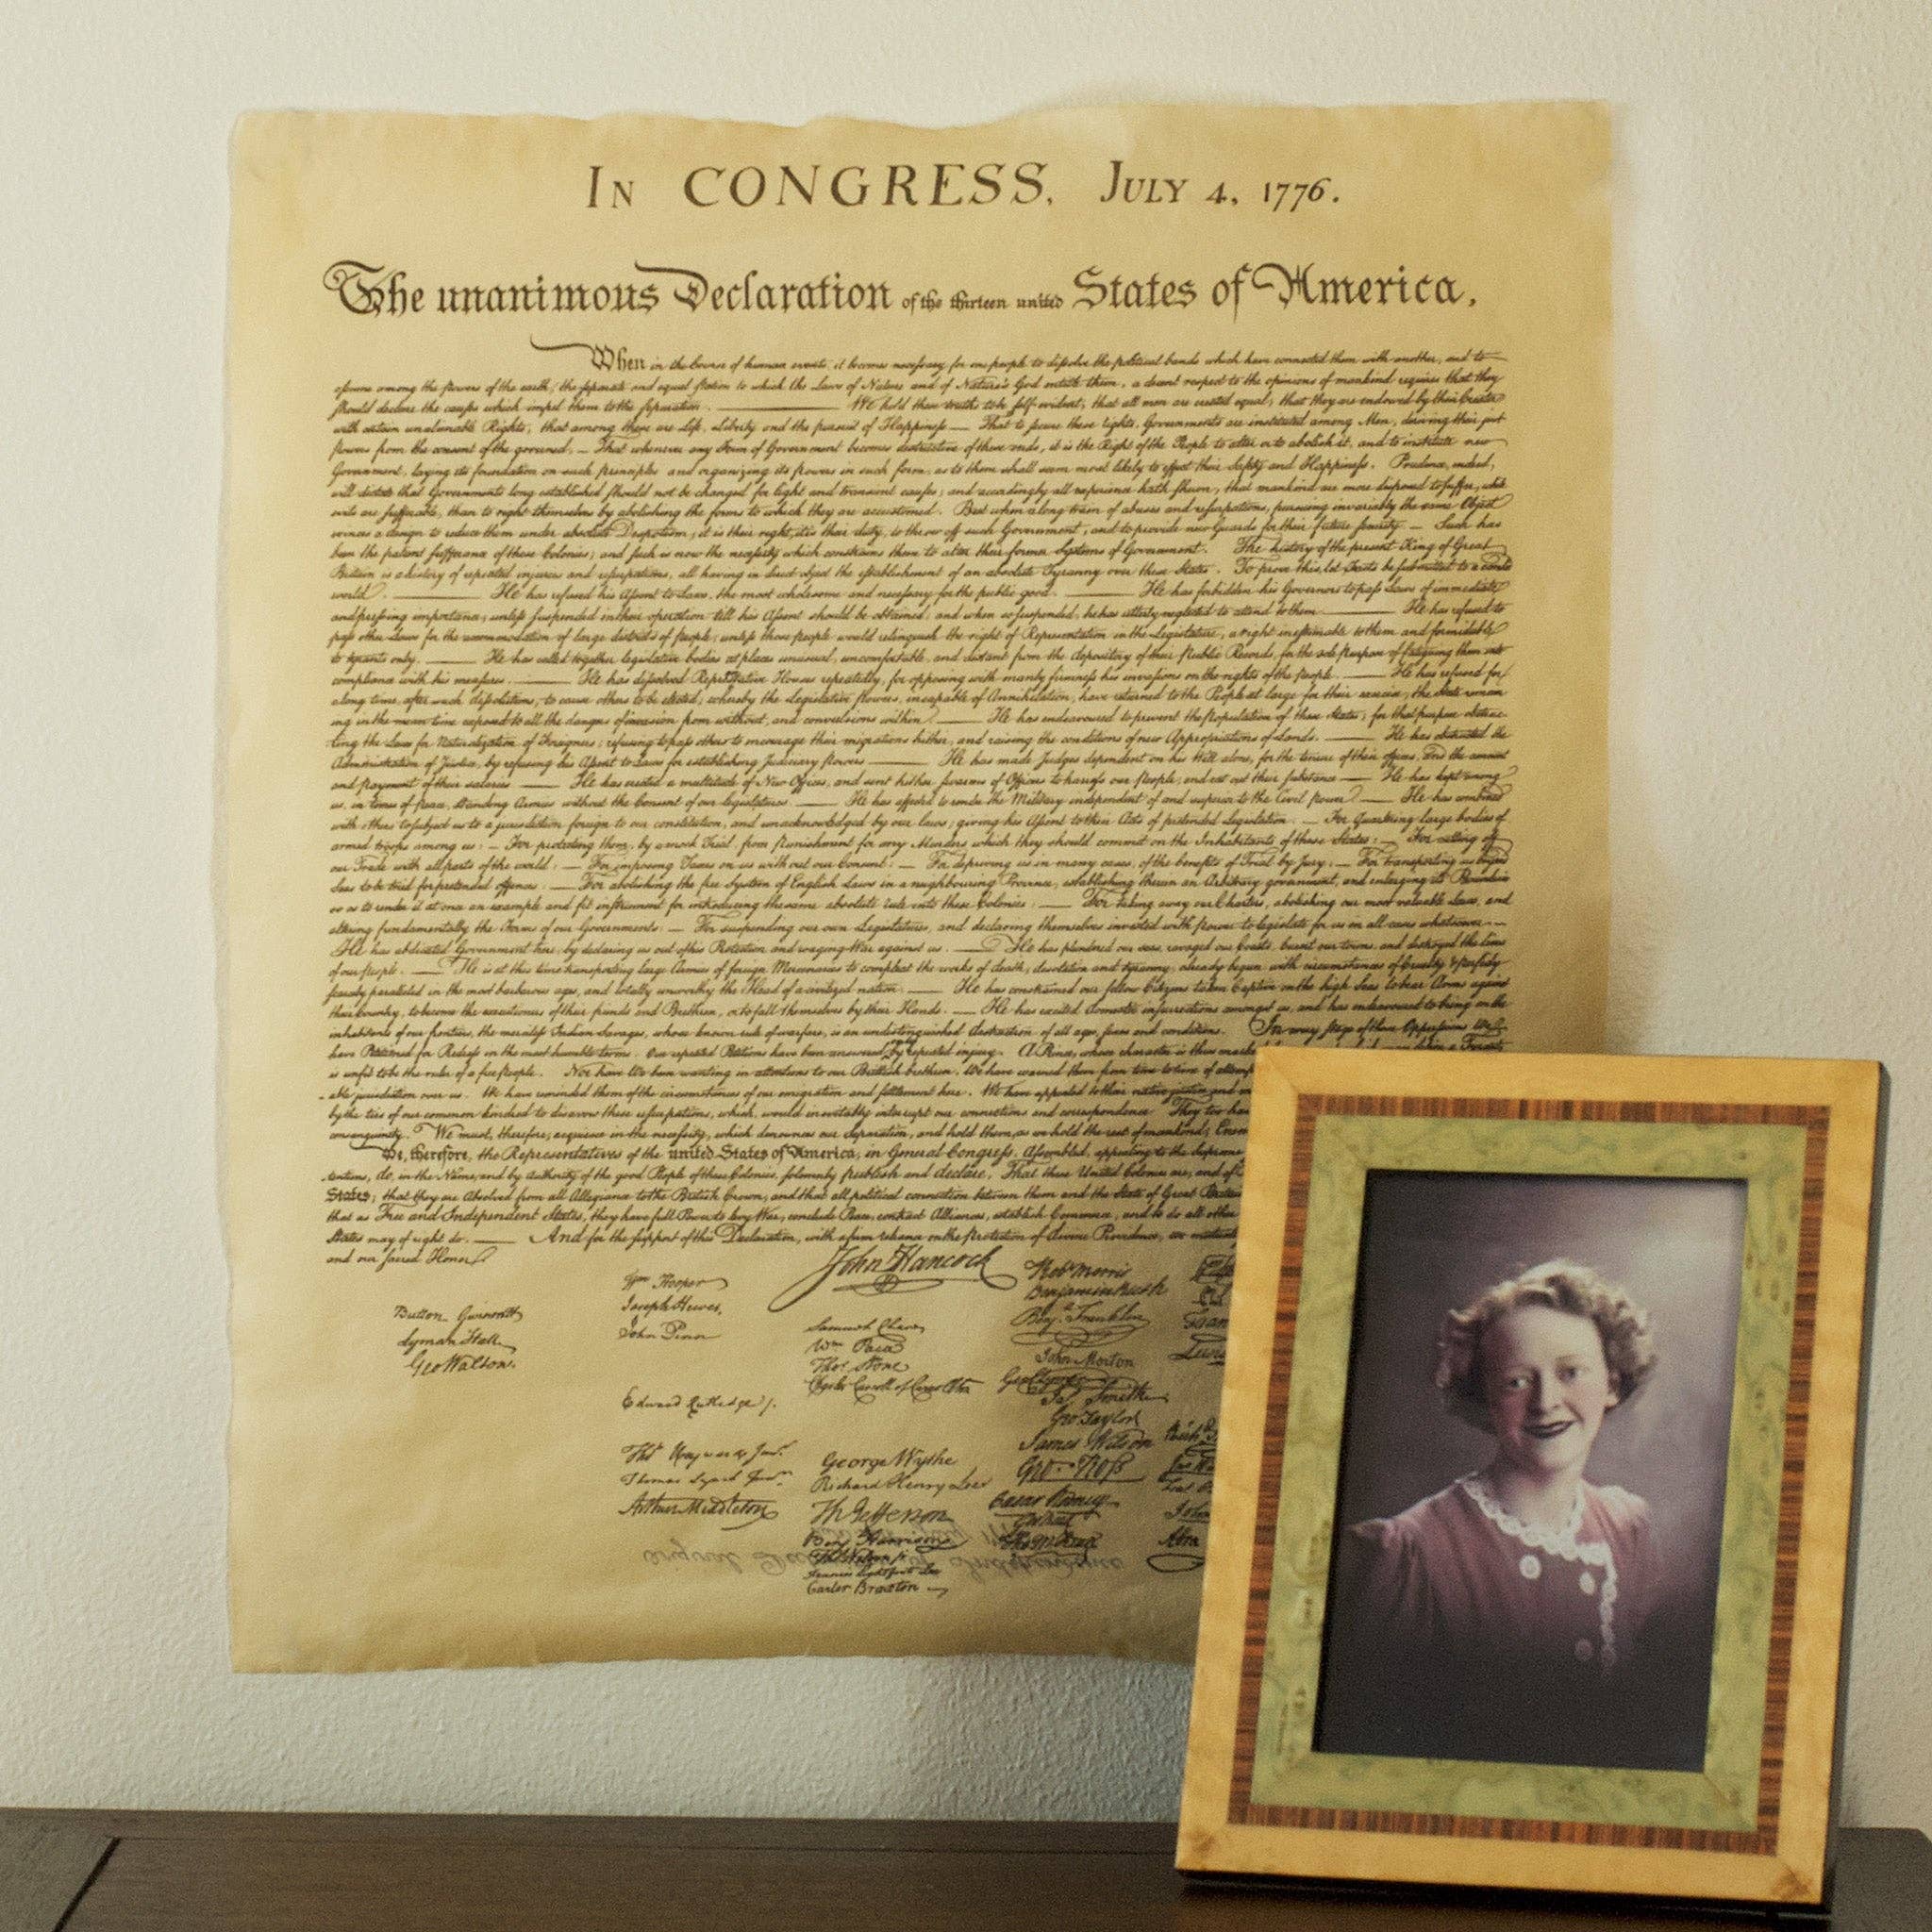 IN CONGRESS, JULY 4, 1776.
The unanimous Declaration of the thirteen united States of America,
When in the Course of human events, it becomes necessary for one people to dissolve the political bands which have connected them with another, and to
assume among the powers of the earth, the separate and equal station to which the Laws of Nature and of Nature's God entitle them, a decent respect to the opinions of mankind requires that they
should declare the causes which impel them to the separation. ——— We hold these truths to be self-evident, that all men are created equal, that they are endowed by their Creator
with certain unalienable Rights, that among these are Life, Liberty and the pursuit of Happiness.— That to secure these rights, Governments are instituted among Men, deriving their just
powers from the consent of the governed, — That whenever any Form of Government becomes destructive of these ends, it is the Right of the People to alter or to abolish it, and to institute new
Government, laying its foundation on such principles and organizing its powers in such form, as to them shall seem most likely to effect their Safety and Happiness. Prudence, indeed,
will dictate that Governments long established should not be changed for light and transient causes; and accordingly all experience hath shewn, that mankind are more disposed to suffer, while
evils are sufferable, than to right themselves by abolishing the forms to which they are accustomed. But when a long train of abuses and usurpations, pursuing invariably the same Object
evinces a design to reduce them under absolute Despotism, it is their right, it is their duty, to throw off such Government, and to provide new Guards for their future security. — Such has
been the patient sufferance of these Colonies; and such is now the necessity which constrains them to alter their former Systems of Government. The history of the present King of Great
Britain is a history of repeated injuries and usurpations, all having in direct object the establishment of an absolute Tyranny over these States. To prove this, let Facts be submitted to a candid
world. ——— He has refused his Assent to Laws, the most wholesome and necessary for the public good. ——— He has forbidden his Governors to pass Laws of immediate
and pressing importance, unless suspended in their operation till his Assent should be obtained; and when so suspended, he has utterly neglected to attend to them. ——— He has refused to
pass other Laws for the accommodation of large districts of people, unless those people would relinquish the right of Representation in the Legislature, a right inestimable to them and formidable
to tyrants only. ——— He has called together legislative bodies at places unusual, uncomfortable, and distant from the depository of their Public Records, for the sole purpose of fatiguing them into
compliance with his measures. ——— He has dissolved Representative Houses repeatedly, for opposing with manly firmness his invasions on the rights of the people. ——— He has refused for
a long time, after such dissolutions, to cause others to be elected; whereby the Legislative powers, incapable of Annihilation, have returned to the People at large for their exercise; the State remain
ing in the mean time exposed to all the dangers of invasion from without, and convulsions within. ——— He has endeavoured to prevent the population of these States; for that purpose obstruc-
ting the Laws for Naturalization of Foreigners; refusing to pass others to encourage their migrations hither, and raising the conditions of new Appropriations of Lands. ——— He has obstructed the
Administration of Justice, by refusing his Assent to Laws for establishing Judiciary powers. ——— He has made Judges dependent on his Will alone, for the tenure of their offices, and the amount
and payment of their salaries. ——— He has erected a multitude of New Offices, and sent hither swarms of Officers to harrass our people, and eat out their substance. ——— He has kept among
us, in times of peace, Standing Armies without the Consent of our legislatures. ——— He has affected to render the Military independent of and superior to the Civil power. ——— He has combined
with others to subject us to a jurisdiction foreign to our constitution, and unacknowledged by our laws; giving his Assent to their Acts of pretended Legislation: — For Quartering large bodies of
armed troops among us: — For protecting them, by a mock Trial, from punishment for any Murders which they should commit on the Inhabitants of these States: — For cutting off
our Trade with all parts of the world: — For imposing Taxes on us without our Consent: — For depriving us in many cases, of the benefits of Trial by Jury: — For transporting us beyond
Seas to be tried for pretended offences: — For abolishing the free System of English Laws in a neighbouring Province, establishing therein an Arbitrary government, and enlarging its Boundaries
so as to render it at once an example and fit instrument for introducing the same absolute rule into these Colonies: — For taking away our Charters, abolishing our most valuable Laws, and
altering fundamentally the Forms of our Governments: — For suspending our own Legislatures, and declaring themselves invested with power to legislate for us in all cases whatsoever. —
He has abdicated Government here, by declaring us out of his Protection and waging War against us. ——— He has plundered our seas, ravaged our Coasts, burnt our towns, and destroyed the lives
of our people. ——— He is at this time transporting large Armies of foreign Mercenaries to compleat the works of death, desolation and tyranny, already begun with circumstances of Cruelty & perfidy
scarcely paralleled in the most barbarous ages, and totally unworthy the Head of a civilized nation. ——— He has constrained our fellow Citizens taken Captive on the high Seas to bear Arms against
their Country, to become the executioners of their friends and Brethren, or to fall themselves by their Hands. ——— He has excited domestic insurrections amongst us, and has endeavoured to bring on the
inhabitants of our frontiers, the merciless Indian Savages, whose known rule of warfare, is an undistinguished destruction of all ages, sexes and conditions. In every stage of these Oppressions We
have Petitioned for Redress in the most humble terms: Our repeated Petitions have been answered only by repeated injury. A Prince, whose character is thus marked
is unfit to be the ruler of a free people. Nor have We been wanting in attentions to our Brittish brethren. We have warned them from time to time of
able jurisdiction over us. We have reminded them of the circumstances of our emigration and settlement here. We have appealed to their native justice and
by the ties of our common kindred to disavow these usurpations, which, would inevitably interrupt our connections and correspondence. They too
consanguinity. We must, therefore, acquiesce in the necessity, which denounces our Separation, and hold them, as we hold the rest of mankind,
We, therefore, the Representatives of the united States of America, in General Congress, Assembled, appealing to the Supreme
tentions, do, in the Name, and by Authority of the good People of these Colonies, solemnly publish and declare, That these United Colonies are, and of
States; that they are Absolved from all Allegiance to the British Crown, and that all political connection between them and the State of Great Britain
that as Free and Independent States, they have full Power to levy War, conclude Peace, contract Alliances, establish Commerce, and to do all other
States may of right do. ——— And for the support of this Declaration, with a firm reliance on the protection of divine Providence, we
and our sacred Honor.
John Hancock
Button Gwinnett
Lyman Hall
Geo Walton.
Wm Hooper
Joseph Hewes,
John Penn
Edward Rutledge /.
Thos Heyward Junr.
Thomas Lynch Junr.
Arthur Middleton
Samuel Chase
Wm Paca
Thos Stone
Charles Carroll of Carrollton
George Wythe
Richard Henry Lee
Th Jefferson
Benj Harrison
Thos Nelson jr.
Francis Lightfoot Lee
Carter Braxton
Robt Morris
Benjamin Rush
Benj. Franklin
John Morton
Geo Clymer
Jas Smith
Geo. Taylor
James Wilson
Geo. Ross
Caesar Rodney
Geo Read
Tho M:Kean